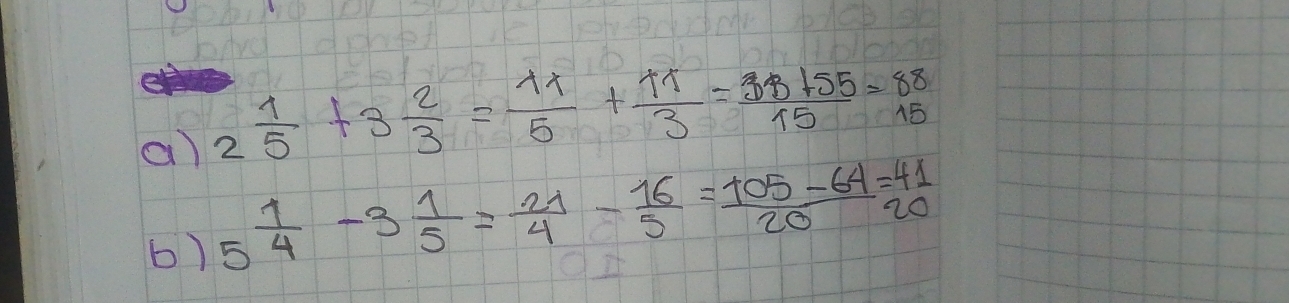 a) 2 1/5 + 3 2/3 = 11/5 + 11/3 = 33+55/15 = 88/15
b) 5 1/4 - 3 1/5 = 21/4 - 16/5 = 105-64/20 = 41/20